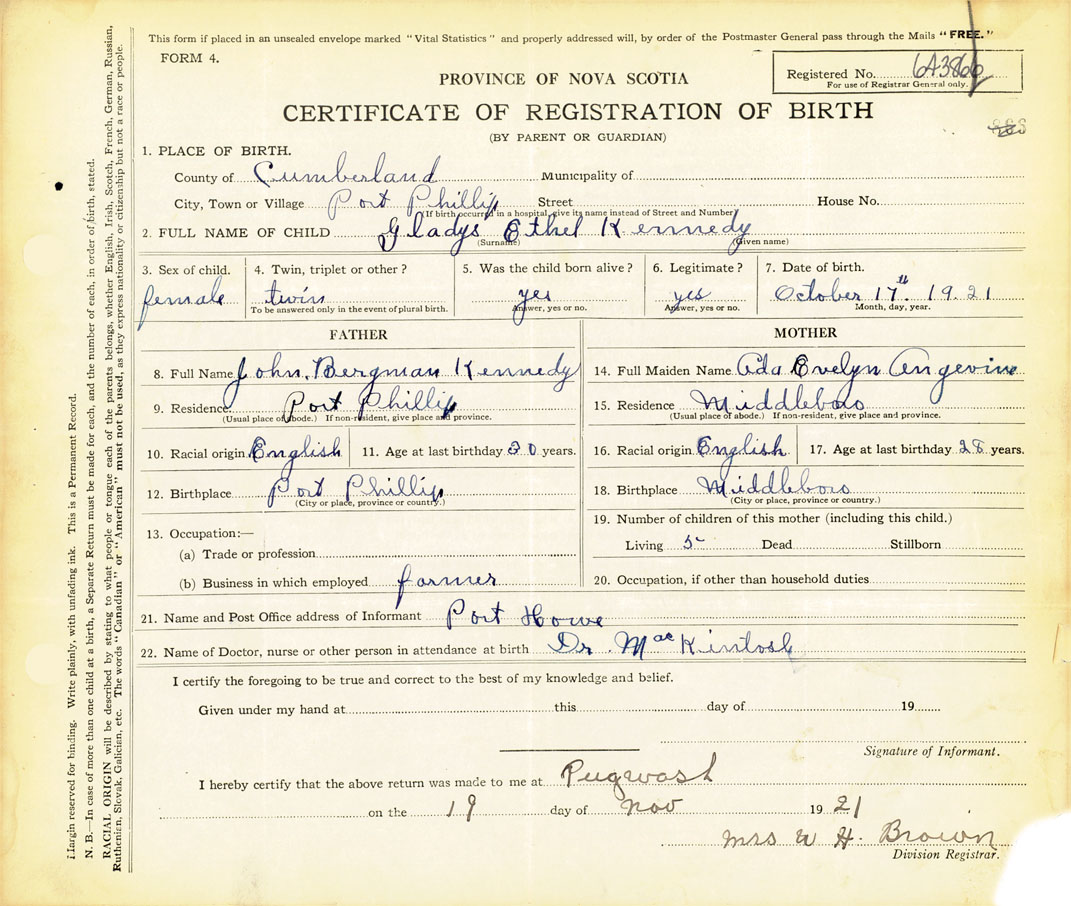 This form if placed in an unsealed envelope marked "Vital Statistics" and properly addressed will, by order of the Postmaster General pass through the Mails "FREE."
FORM 4.
Registered No. 643866
For use of Registrar General only.
PROVINCE OF NOVA SCOTIA
CERTIFICATE OF REGISTRATION OF BIRTH
(BY PARENT OR GUARDIAN)
1. PLACE OF BIRTH.
County of Cumberland Municipality of
City, Town or Village Port Phillip Street House No.
(If birth occurred in a hospital, give its name instead of Street and Number)
2. FULL NAME OF CHILD Gladys Ethel Kennedy
(Surname) (Given name)
3. Sex of child. 4. Twin, triplet or other? 5. Was the child born alive? 6. Legitimate? 7. Date of birth.
female twin yes yes October 17th. 19.21
To be answered only in the event of plural birth. Answer, yes or no. Answer, yes or no. Month, day, year.
FATHER MOTHER
8. Full Name John Bergman Kennedy 14. Full Maiden Name Ada Evelyn Angevine
9. Residence Port Phillip 15. Residence Middleboro
(Usual place of abode.) If non-resident, give place and province. (Usual place of abode.) If non-resident, give place and province.
10. Racial origin English 11. Age at last birthday 30 years. 16. Racial origin English 17. Age at last birthday 28 years.
12. Birthplace Port Phillip 18. Birthplace Middleboro
(City or place, province or country.) (City or place, province or country.)
13. Occupation:— 19. Number of children of this mother (including this child.)
(a) Trade or profession Living 5 Dead Stillborn
(b) Business in which employed farmer 20. Occupation, if other than household duties
21. Name and Post Office address of Informant Port Howe
22. Name of Doctor, nurse or other person in attendance at birth Dr. MacKintosh
I certify the foregoing to be true and correct to the best of my knowledge and belief.
Given under my hand at this day of 19
Signature of Informant.
I hereby certify that the above return was made to me at Pugwash
on the 19 day of Nov 1921
Mrs W H. Brown
Division Registrar.
Margin reserved for binding. Write plainly, with unfading ink. This is a Permanent Record.
N. B.—In case of more than one child at a birth, a Separate Return must be made for each, and the number of each, in order of birth, stated.
RACIAL ORIGIN will be described by stating to what people or tongue each of the parents belongs, whether English, Irish, Scotch, French, German, Russian,
Ruthenian, Slovak, Galician, etc. The words "Canadian" or "American" must not be used, as they express nationality or citizenship but not a race or people.